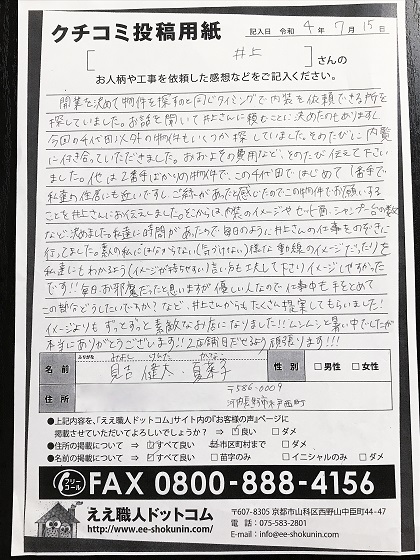 クチコミ投稿用紙
記入日 令和 4年 7月 15日
[ 井上 ] さんの
お人柄や工事を依頼した感想などをご記入ください。
開業を決めて物件を探すのと同じタイミングで内装を依頼できる所を
探していました。お話を聞いて井上さんに頼むことに決めたのもあります
今回の千代田以外の物件もいくつか探していました。そのたびに内覧
に付き合っていただきました。おおよその費用など、そのたび伝えて下さい
ました。他は2番手ばかりの物件で、この千代田ではじめて1番手で
私達の住居にも近いですし、ご縁があったと感じたのでこの物件でお願いする
ことを井上さんにお伝えしました。そこからは内装のイメージやセット面、シャンプー台の数
など決めました。私達に時間があたので毎日のように井上さんの仕事をのぞきに
行ってました。素人の私にはわからない(気づけない)様な動線のイメージだったり
私達にもわかるよう(イメージが持ちやすい)言い方も工夫して下さりイメージしやすかった
です!!毎日お邪魔だったと思いますが優しい人なので仕事中も手をとめて
この部分どうしたいですか?など、井上さんからもたくさん提案してもらいました!
イメージよりもずっとずっと素敵なお店になりました!!ムシムシと暑い中でしたが
本当にありがとうございます!!2店舗目だせるよう頑張ります!!!
ふりがな みよし けんた かなこ
名前 見吉 健太・
性別 □男性 □女性
住所 〒586-0009
河内長野市木戸西町
●上記内容を、「ええ職人ドットコム」サイト内の『お客様の声』ページに
掲載させていただいてよろしいでしょうか? ☑良い □ダメ
●住所の掲載について → □すべて良い ☑市区町村まで □ダメ
●名前の掲載について → ☑すべて良い □苗字のみ □イニシャルのみ □ダメ
フリーコール FAX 0800-888-4156
ええ職人ドットコム
http://www.ee-shokunin.com/
〒607-8305 京都市山科区西野山中臣町44-47
電話:075-583-2801
E-mail:info@ee-shokunin.com